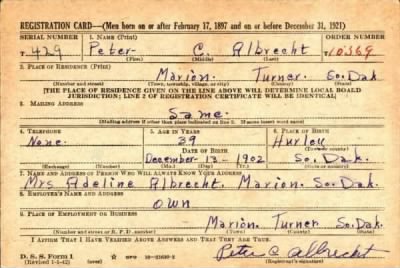 REGISTRATION CARD—(Men born on or after February 17, 1897 and on or before December 31, 1921)
SERIAL NUMBER 1. NAME (Print) ORDER NUMBER
T. 429 Peter C. Albrecht 10369
(First) (Middle) (Last)
2. PLACE OF RESIDENCE (Print)
Marion. Turner So. Dak.
(Number and street) (Town, township, village, or city) (County) (State)
[THE PLACE OF RESIDENCE GIVEN ON THE LINE ABOVE WILL DETERMINE LOCAL BOARD
JURISDICTION; LINE 2 OF REGISTRATION CERTIFICATE WILL BE IDENTICAL]
3. MAILING ADDRESS
Same.
[Mailing address if other than place indicated on line 2. If same insert word same]
4. TELEPHONE 5. AGE IN YEARS 6. PLACE OF BIRTH
None. 39 Hurley
DATE OF BIRTH (Town or county)
December - 13 - 1902 So. Dak.
(Exchange) (Number) (Mo.) (Day) (Yr.) (State or country)
7. NAME AND ADDRESS OF PERSON WHO WILL ALWAYS KNOW YOUR ADDRESS
Mrs Adeline Albrecht. Marion. So. Dak.
8. EMPLOYER'S NAME AND ADDRESS
OWN
9. PLACE OF EMPLOYMENT OR BUSINESS
Marion. Turner So. Dak.
(Number and street or R. F. D. number) (Town) (County) (State)
I AFFIRM THAT I HAVE VERIFIED ABOVE ANSWERS AND THAT THEY ARE TRUE.
D. S. S. Form 1
(Revised 1-1-42) (over) Peter C Albrecht